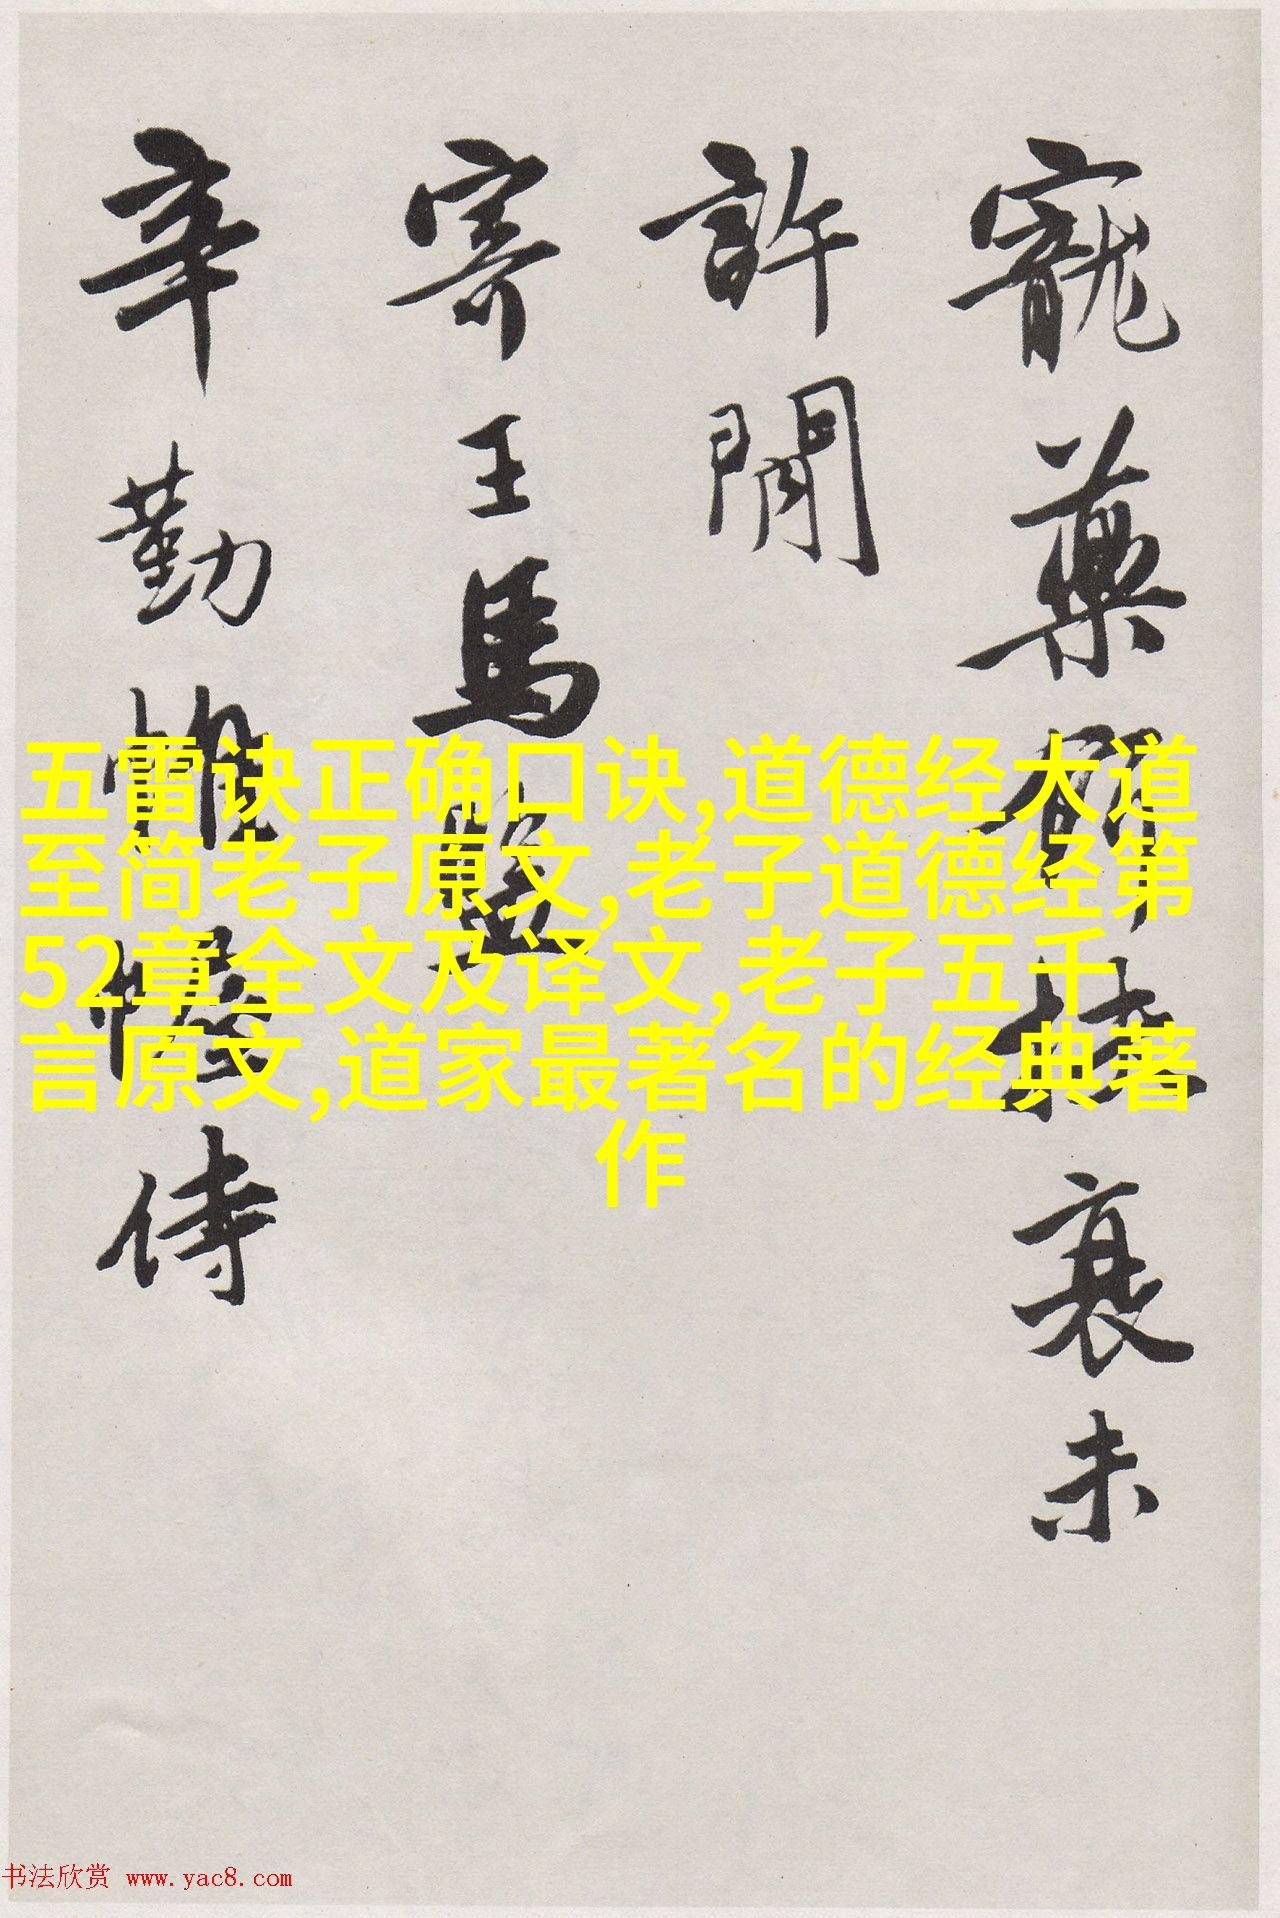 寵藥領扶衰未
許閒
寄王馬監
辛勤惟帳侍
五雷诀正确口诀,道德经大道
至简老子原文,老子道德经第
52章全文及译文,老子五千
言原文,道家最著名的经典著
作
书法欣赏 www.yac8.com